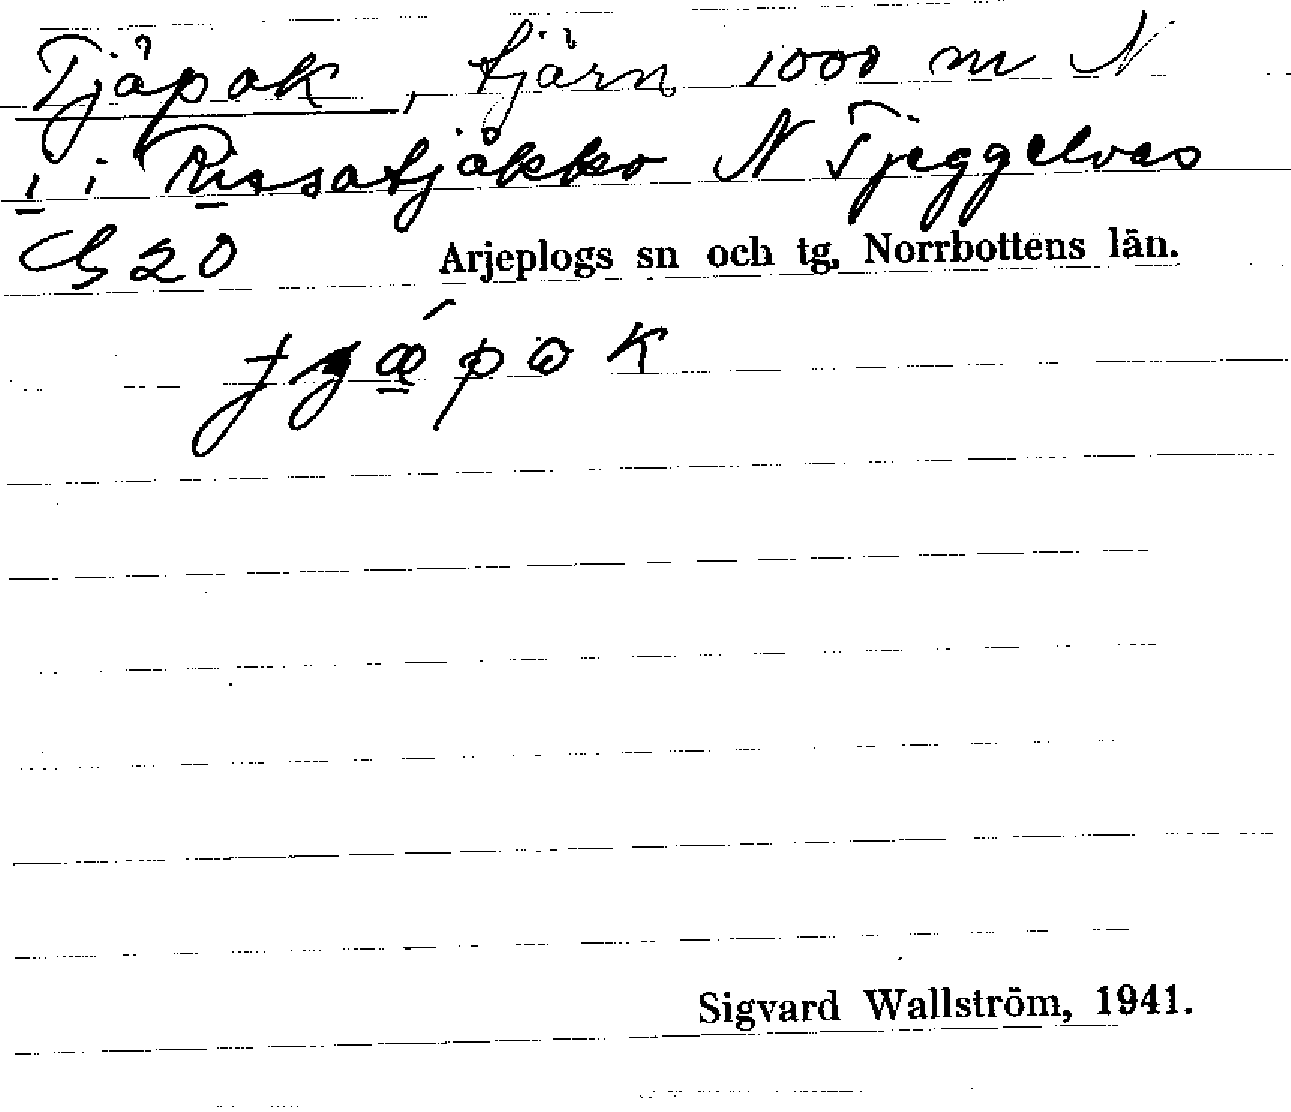 Tjåpok, tjärn 1000 m N
i i Rissatjåkko N Tjeggelvas
G 20 Arjeplogs sn och tg, Norrbottens län.
Sigvard Wallström, 1941.